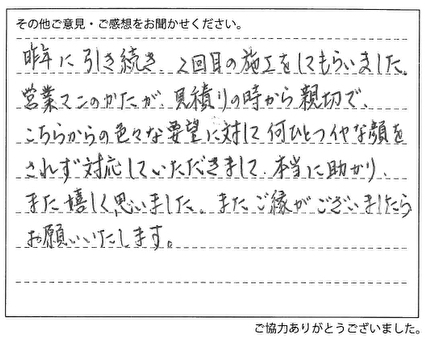 その他ご意見・ご感想をお聞かせください。
昨年に引き続き、2回目の施工をしてもらいました。
営業マンのかたが、見積りの時から親切で、
こちらからの色々な要望に対して何ひとつイヤな顔を
されず対応していただきまして、本当に助かり、
また嬉しく思いました。またご縁がございましたら
お願いいたします。
ご協力ありがとうございました。